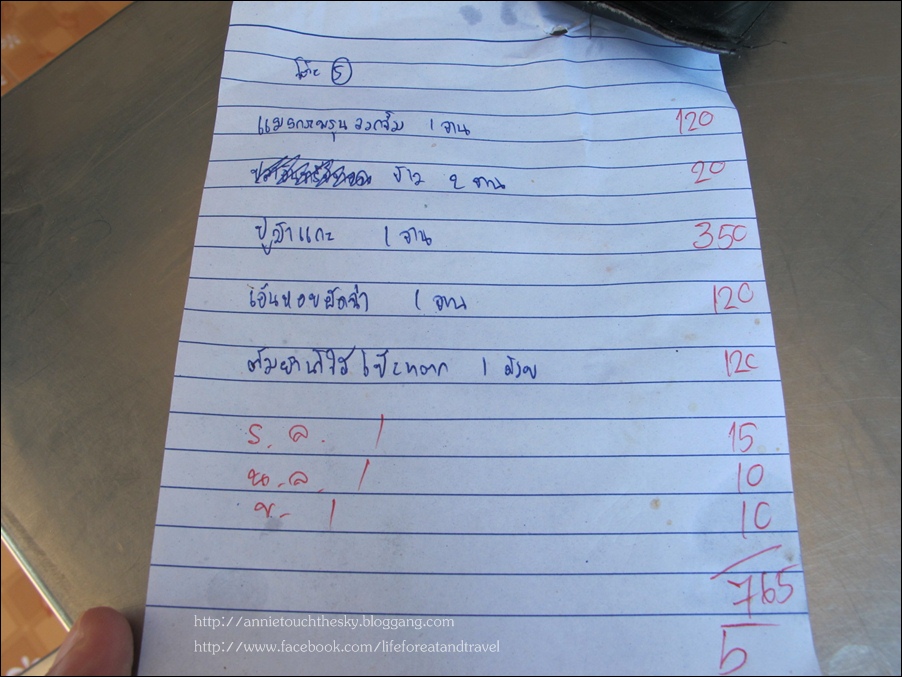 โต๊ะ 5
แมงกะพรุนลวกจิ้ม 1 จาน 120
ข้าว 2 จาน 20
ปูดำแกะ 1 จาน 350
เอ็นหอยผัดฉ่า 1 จาน 120
ต้มยำน้ำใส โป๊ะแตก 1 ถ้วย 120
ร.ล. 1 15
น.ล. 1 10
ข. 1 10
765
b
http://annietouchthesky.bloggang.com
http://www.facebook.com/lifeforeatandtravel